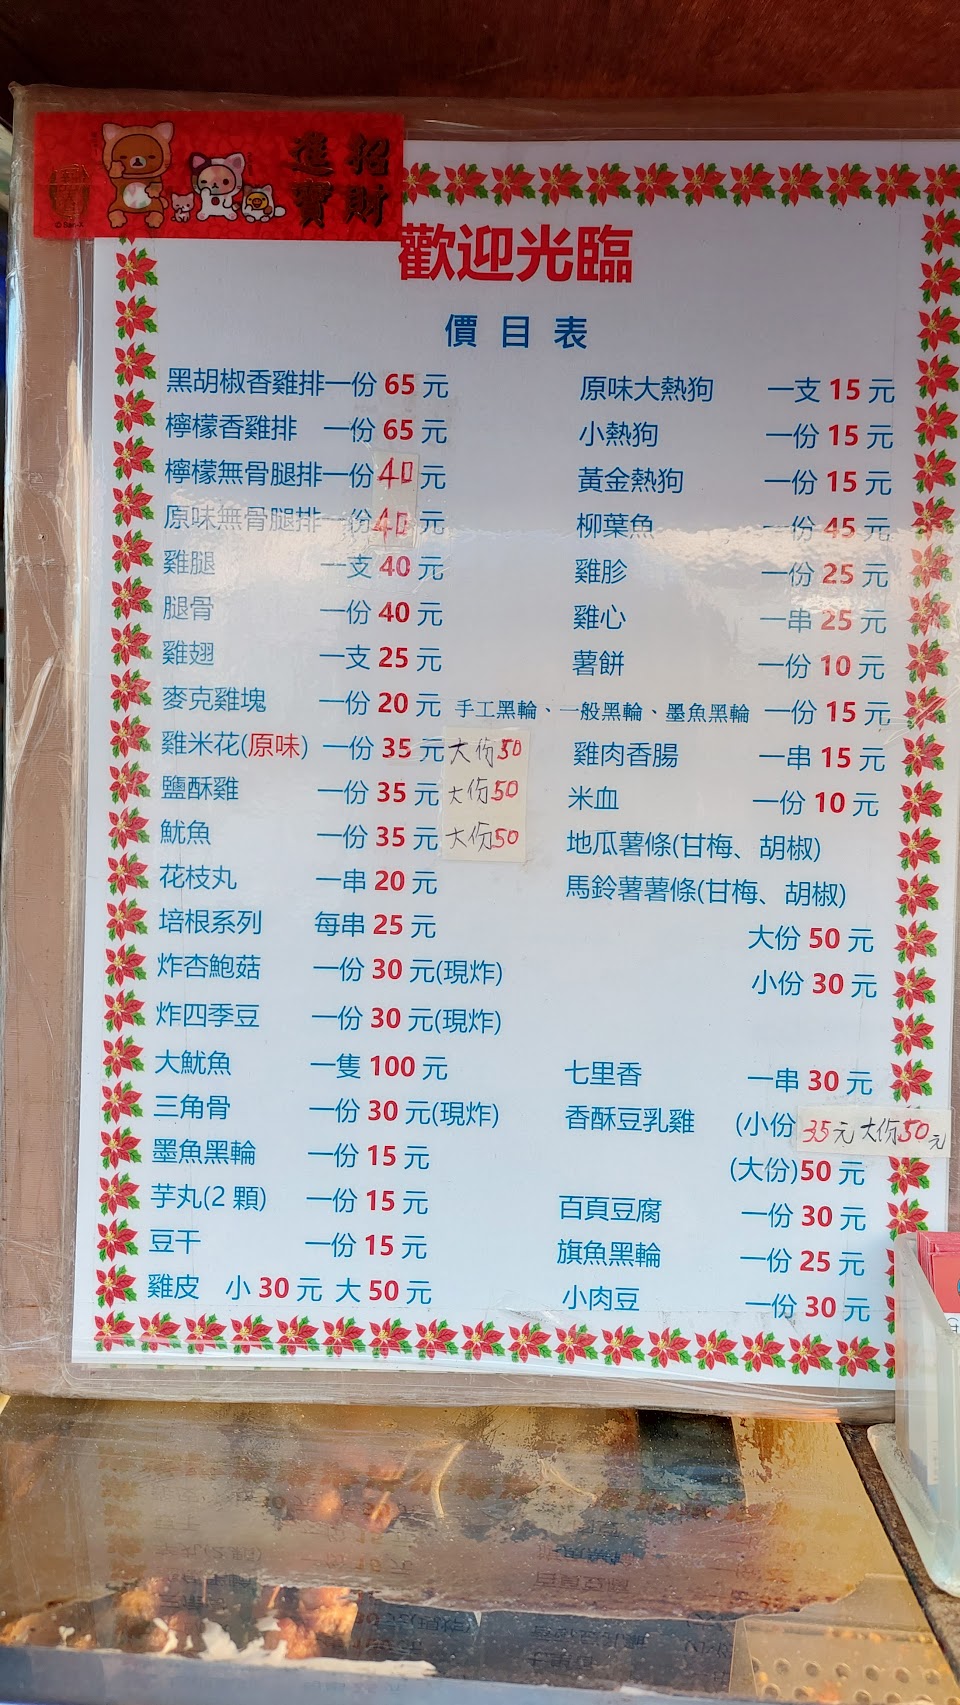 招財
進寶
© San-X
歡迎光臨
價目表
黑胡椒香雞排一份 65 元
檸檬香雞排 一份 65 元
檸檬無骨腿排一份 40 元
原味無骨腿排一份 40 元
雞腿 一支 40 元
腿骨 一份 40 元
雞翅 一支 25 元
麥克雞塊 一份 20 元
雞米花(原味) 一份 35 元 大份50
鹽酥雞 一份 35 元 大份50
魷魚 一份 35 元 大份50
花枝丸 一串 20 元
培根系列 每串 25 元
炸杏鮑菇 一份 30 元(現炸)
炸四季豆 一份 30 元(現炸)
大魷魚 一隻 100 元
三角骨 一份 30 元(現炸)
墨魚黑輪 一份 15 元
芋丸(2 顆) 一份 15 元
豆干 一份 15 元
雞皮 小 30 元 大 50 元
原味大熱狗 一支 15 元
小熱狗 一份 15 元
黃金熱狗 一份 15 元
柳葉魚 一份 45 元
雞胗 一份 25 元
雞心 一串 25 元
薯餅 一份 10 元
手工黑輪、一般黑輪、墨魚黑輪 一份 15 元
雞肉香腸 一串 15 元
米血 一份 10 元
地瓜薯條(甘梅、胡椒)
馬鈴薯薯條(甘梅、胡椒)
大份 50 元
小份 30 元
七里香 一串 30 元
香酥豆乳雞 (小份 35元 大份50元
(大份)50 元
百頁豆腐 一份 30 元
旗魚黑輪 一份 25 元
小肉豆 一份 30 元